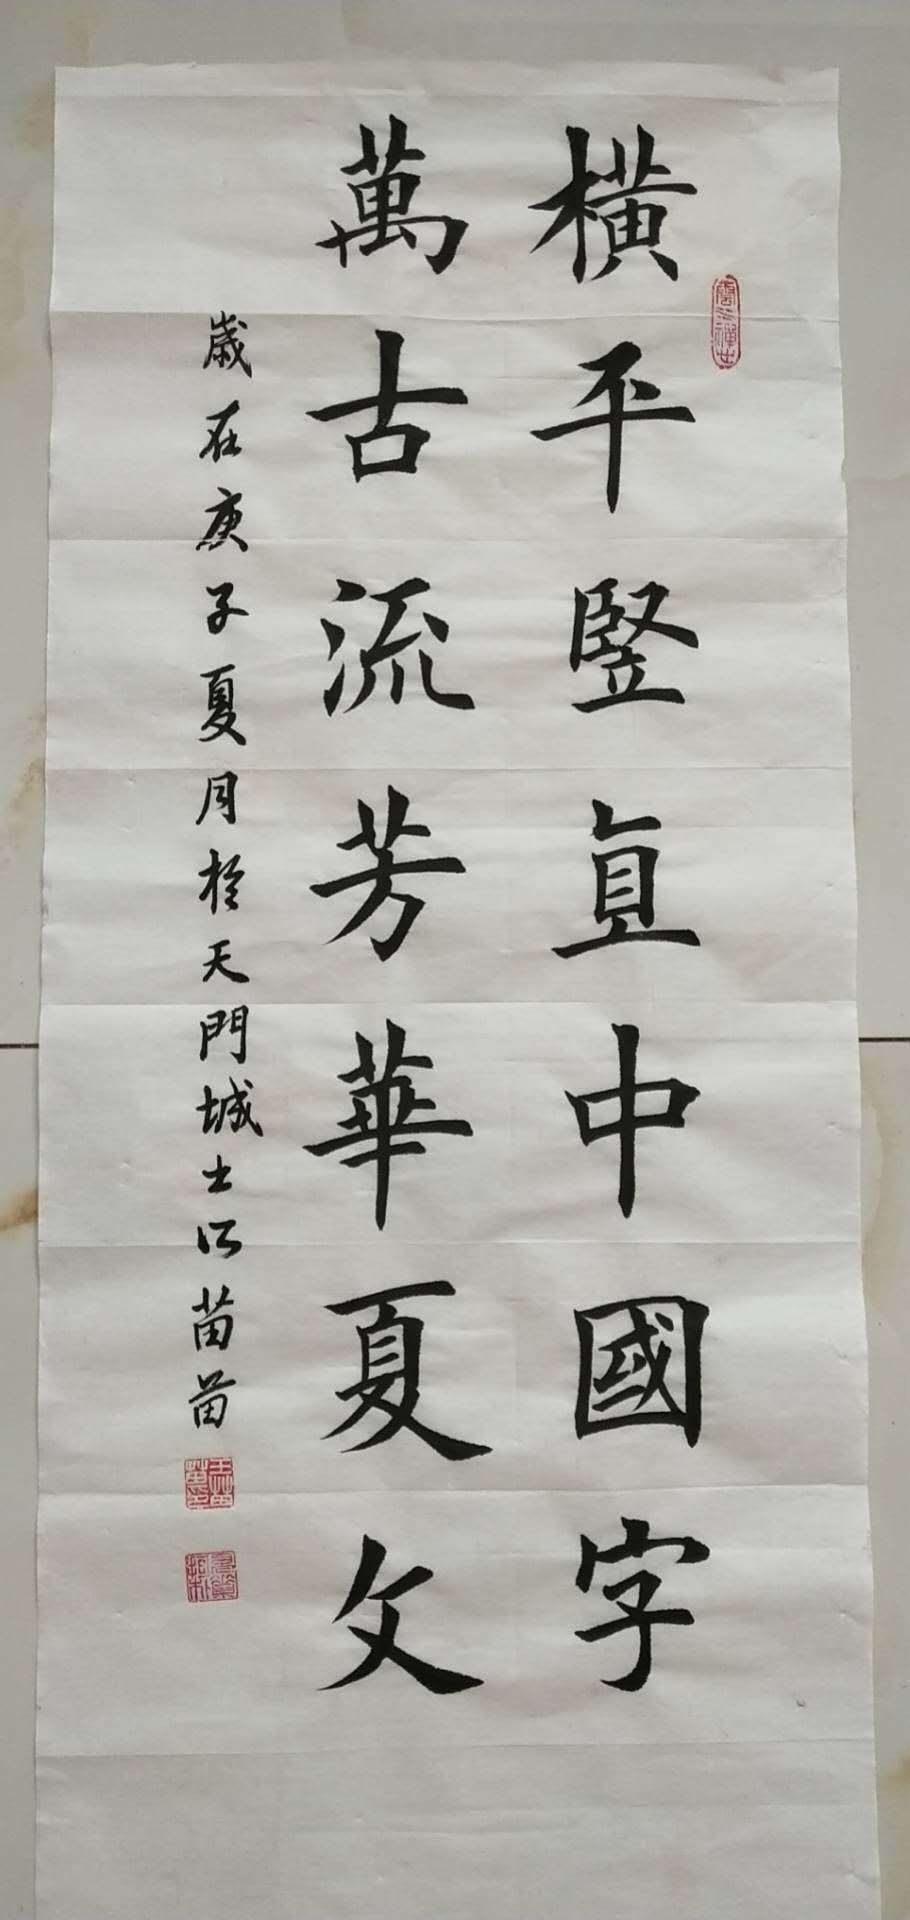 橫平豎直中國字
萬古流芳華夏文
歲在庚子夏月於天門城士江苗苗